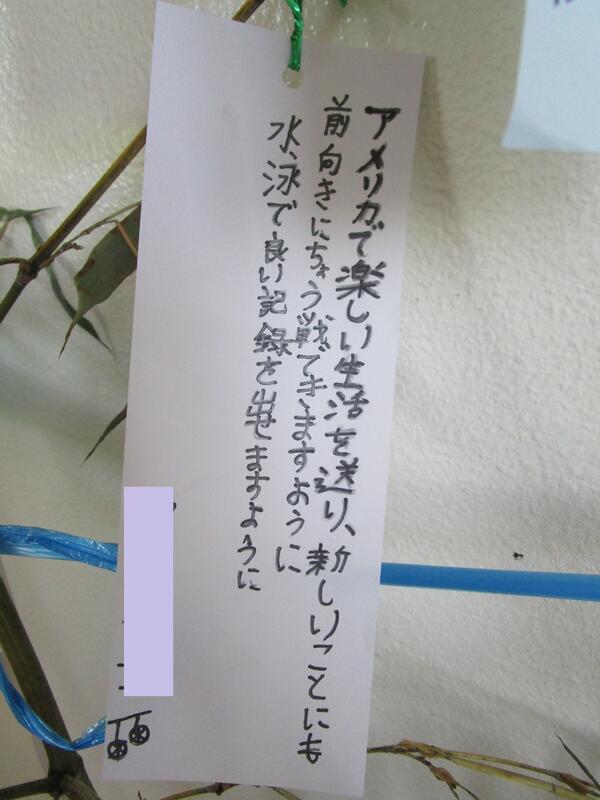 アメリカで楽しい生活を送り、新しいことにも
前向きにちょう戦できますように
水泳で良い記録を出せますように